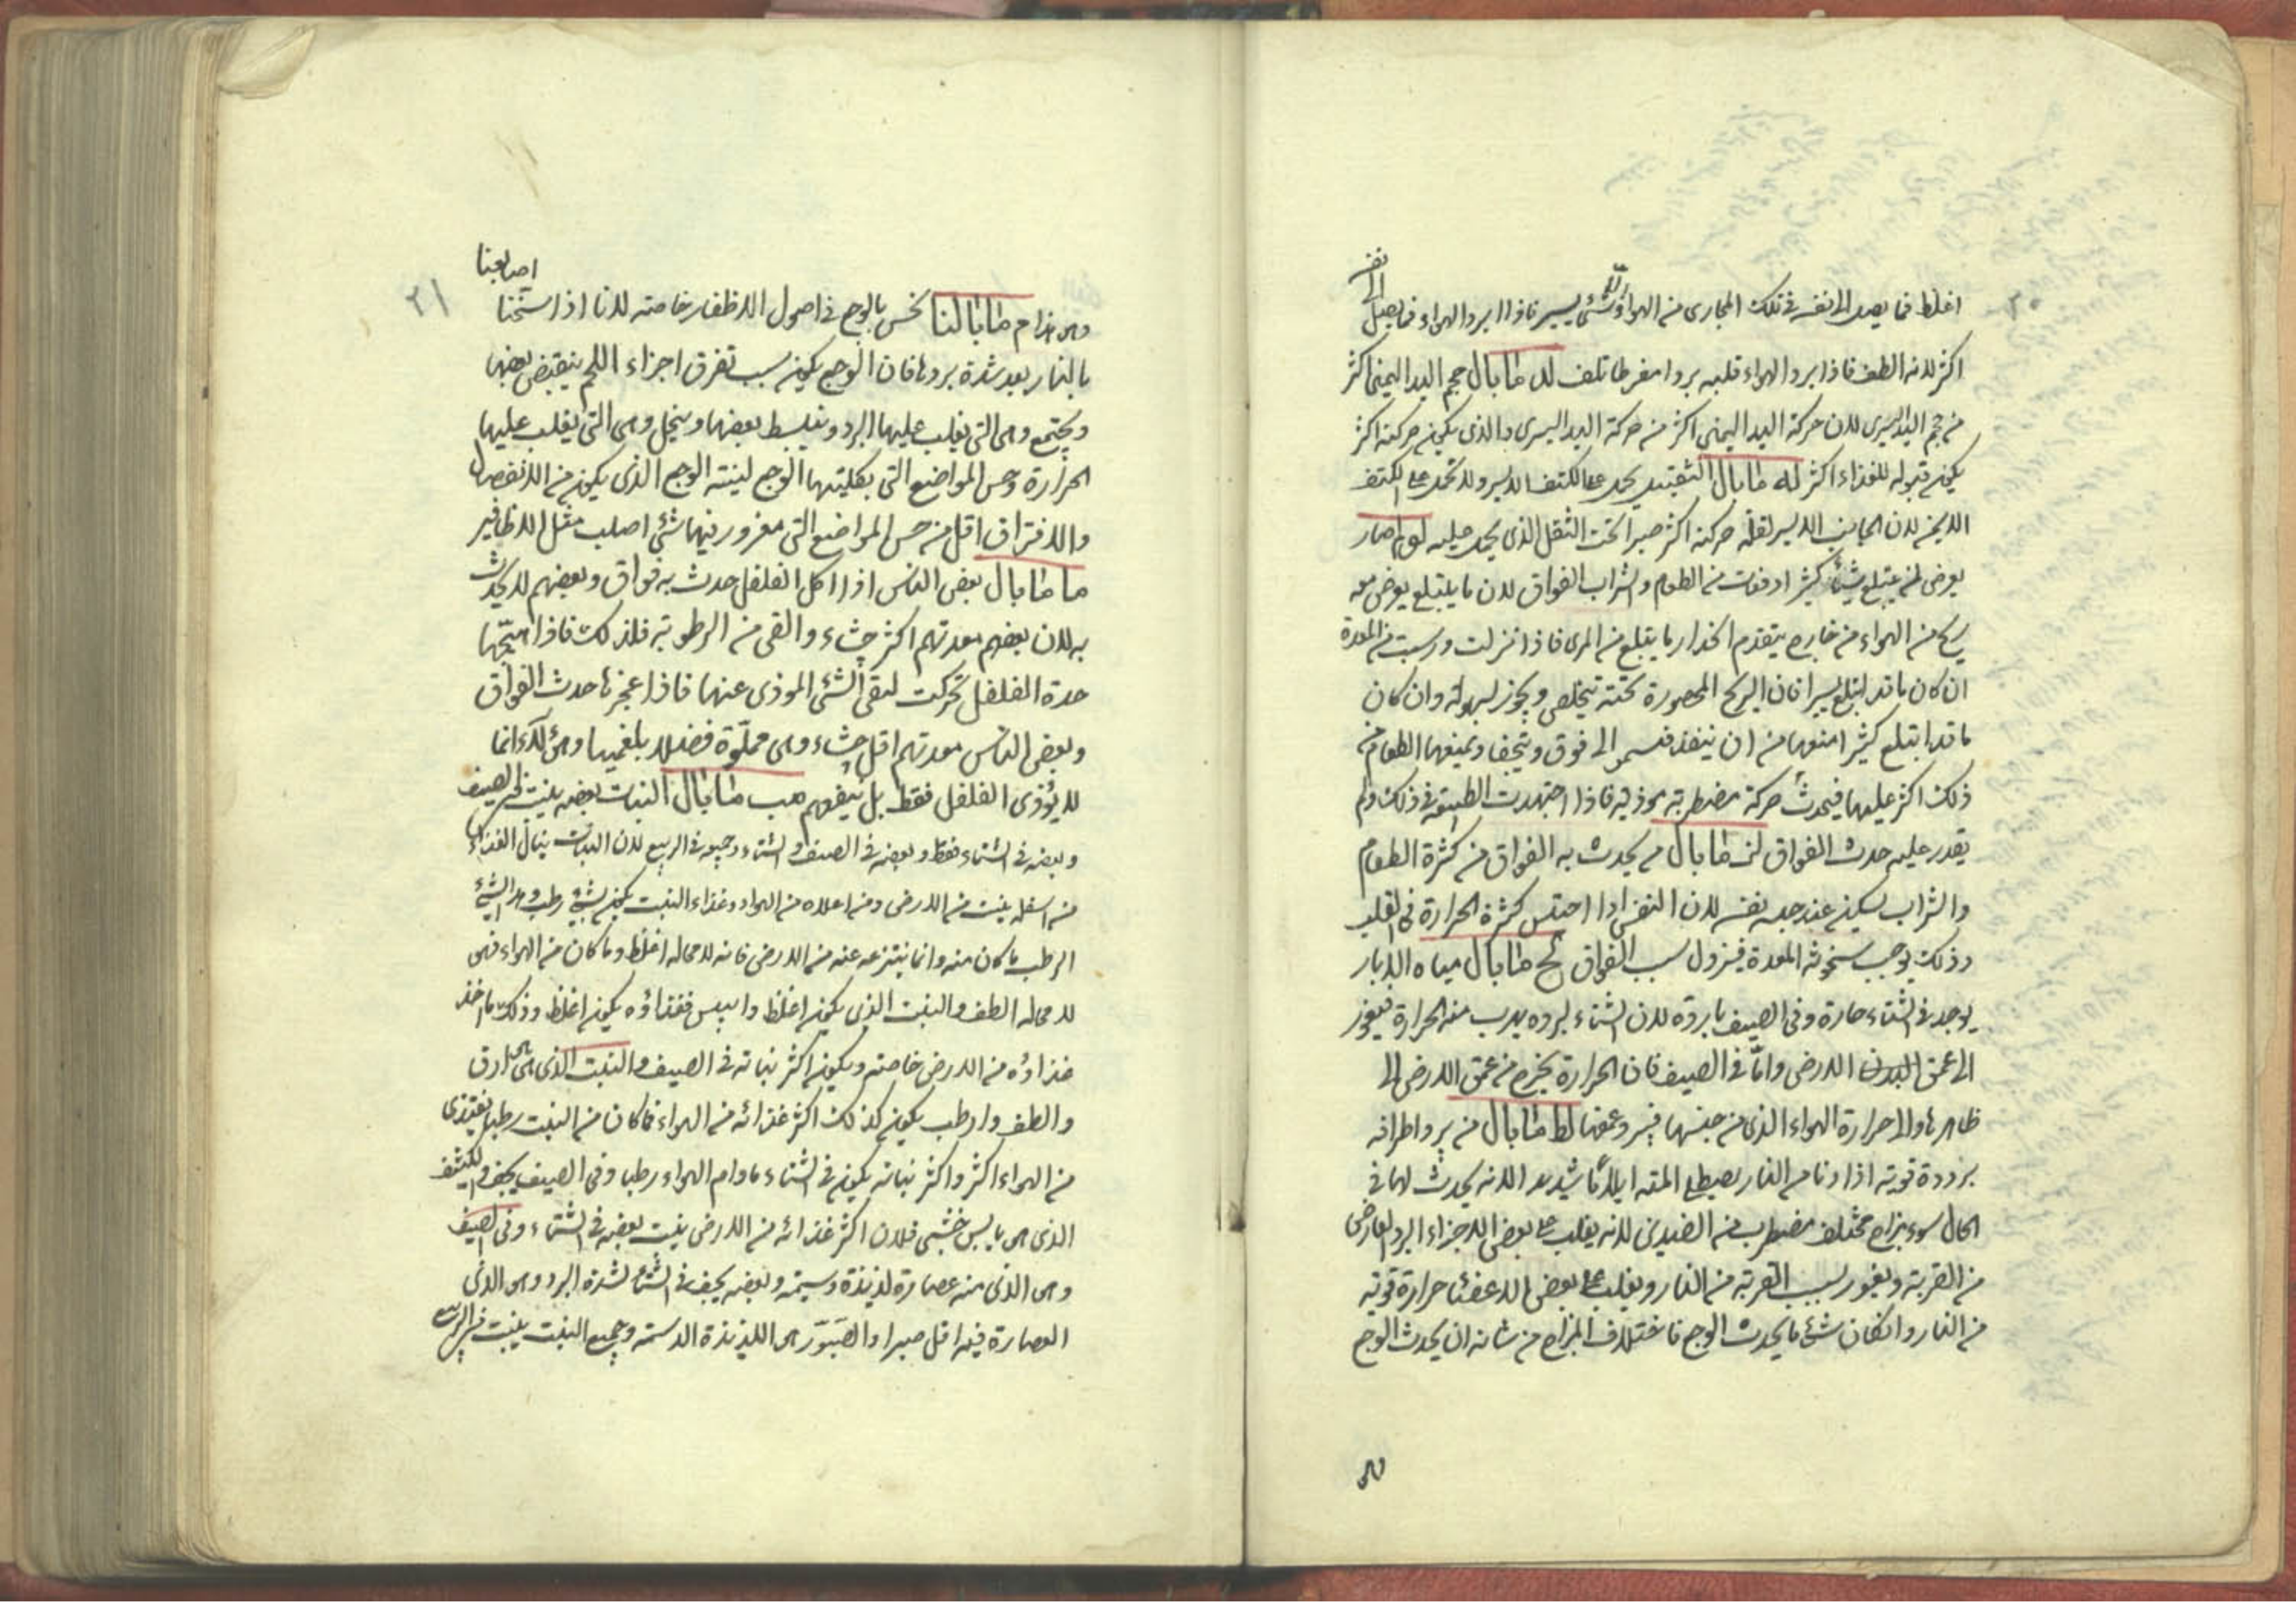 ٢٠
انف
اغلظ فما يصل الانف فى تلك المجارى من الهواء شئ يسير فاذا برد الهواء فما يصل الى
اكثر لانه الطف فاذا برد الهواء قلبه بردا مفرطا تلف لد ما بال حجم اليد اليمنى اكثر
من حجم اليد اليسرى لان حركة اليد اليمنى اكثر من حركة اليد اليسرى والذى يكون حركته اكثر
يكون قبوله للغذاء اكثر له ما بال الثقيل يحمل على الكتف الايسر ولا يحمل على الكتف
الايمن لان الجانب الايسر لقلة حركته اكثر صبرا تحت الثقل الذى يحمل عليه لو لم صار
يعرض لمن يبتلع شيئا كثيرا دفعات من الطعام والشراب الفواق لان ما يبتلع يعرض معه
ريح من الهواء من خارج يتقدم انحدار ما يبتلع من المرى فاذا نزلت ورسبت فى المعدة
ان كان ما قد ابتلع يسيرا فان الريح المحصورة تحته تتخلص وتجوز بسهولة وان كان
ما قد ابتلع كثيرا منعها من ان ينفذ فتسموا الى فوق وتمنعها الطعام من
ذلك اكثر عليها فيحدث حركة مضطربة موذية فاذا اجتهدت الطبيعة فى ذلك ولم
يقدر عليه حدث الفواق لز ما بال من يحدث به الفواق من كثرة الطعام
والشراب يسكن عند حبسه نفسه لان النفس اذا احتبس كثرة الحرارة فى القلب
وذلك يوجب سخونة المعدة فيزول سبب الفواق لح ما بال مياه الابار
يوجد فى الشتاء حارة وفى الصيف باردة لان الشتاء لبرده يهرب منه الحرارة فيغور
الى عمق البدن الارض واما فى الصيف فان الحرارة تخرج من عمق الارض الى
ظاهرها والى حرارة الهواء الذى من جنسها فيبرد عمقها لط ما بال من برد اطرافه
برودة قوية اذا دنا من النار يصطلى المته ايلاما شديدا لانه يحدث لها فى
الحال سوء مزاج مختلف مضطرب من الضدين لانه يغلب على بعض الاجزاء البرد العارض
من القربة ويغور بسبب القربة من النار ويغلب على بعض الاعضاء حرارة قوية
من النار وان كان شئ ما يحدث الوجع فاختلاف المزاج من شانه ان يحدث الوجع
وهى
٢١
اصابعنا
وهى هذا م ما بالنا نحس بالوجع فى اصول الاظفار خاصته لانا اذا استسخنا
بالنار بعد شدة بردها فان الوجع يكون سبب تفرق اجزاء اللحم ينقبض بعضها
ويجتمع وهى التى يغلب عليها البرد وينبسط بعضها وينحل وهى التى يغلب عليها
الحرارة وحس المواضع التى بكليتها الوجع لينته الوجع الذى يكون من الانفصال
والافتراق اقل من حس المواضع التى مغرور فيها شئ اصلب مثل الاظافير
ما ما بال بعض الناس اذا اكل الفلفل حدث به فواق وبعضهم لا يحدث
به لان بعضهم معدتهم اكثر حشاء والقى من الرطوبة فلذلك فاذا هيجها
حدة الفلفل تحركت لتقى الشئ الموذى عنها فاذا عجز ها حدث الفواق
وبعض الناس معدتهم اقل حشاء وهى مملوة فضلا بلغميا وهؤلاء انما
لا يؤذى الفلفل فقط بل ينفعهم مب ما بال النبات بعضه ينبت فى الصيف
وبعضه فى الشتاء فقط وبعضه فى الصيف والشتاء وجميعه فى الربيع لان النبات ينال الغذاء
من اسفله ينبت من الارض ومن اعلاه من الهواء وغذاء النبت يكون بشئ رطب وهذا الشئ
الرطب ما كان منه وانما ينتزعه عنه من الارض فانه لا محاله اغلظ وما كان من الهواء فهى
لا محاله الطف والنبت الذى يكون اغلظ وايبس فغذاؤه يكون اغلظ وذلك ما اخذ
غذاؤه من الارض خاصته ويكون اكثر نباته فى الصيف والنبت الذى هى ارق
والطف وارطب يكون كذلك اكثر غذائه من الهواء فما كان من النبت رطبا يغتذى
من الهواء اكثر واكثر نباته يكون فى الشتاء مادام الهواء رطبا وفى الصيف يجف والكثيف
الذى هى يابس خشبى فلان اكثر غذائه من الارض ينبت بعضه فى الشتاء وفى الصيف
وهى الذى منه عصارة لذيذة دسمة وبعضه يجف فى الشتاء لشدة البرد وهى الذى
العصارة فيه اقل صبرا والصبور هى اللذيذة الدسمة وجميع النبت ينبت فى الربيع